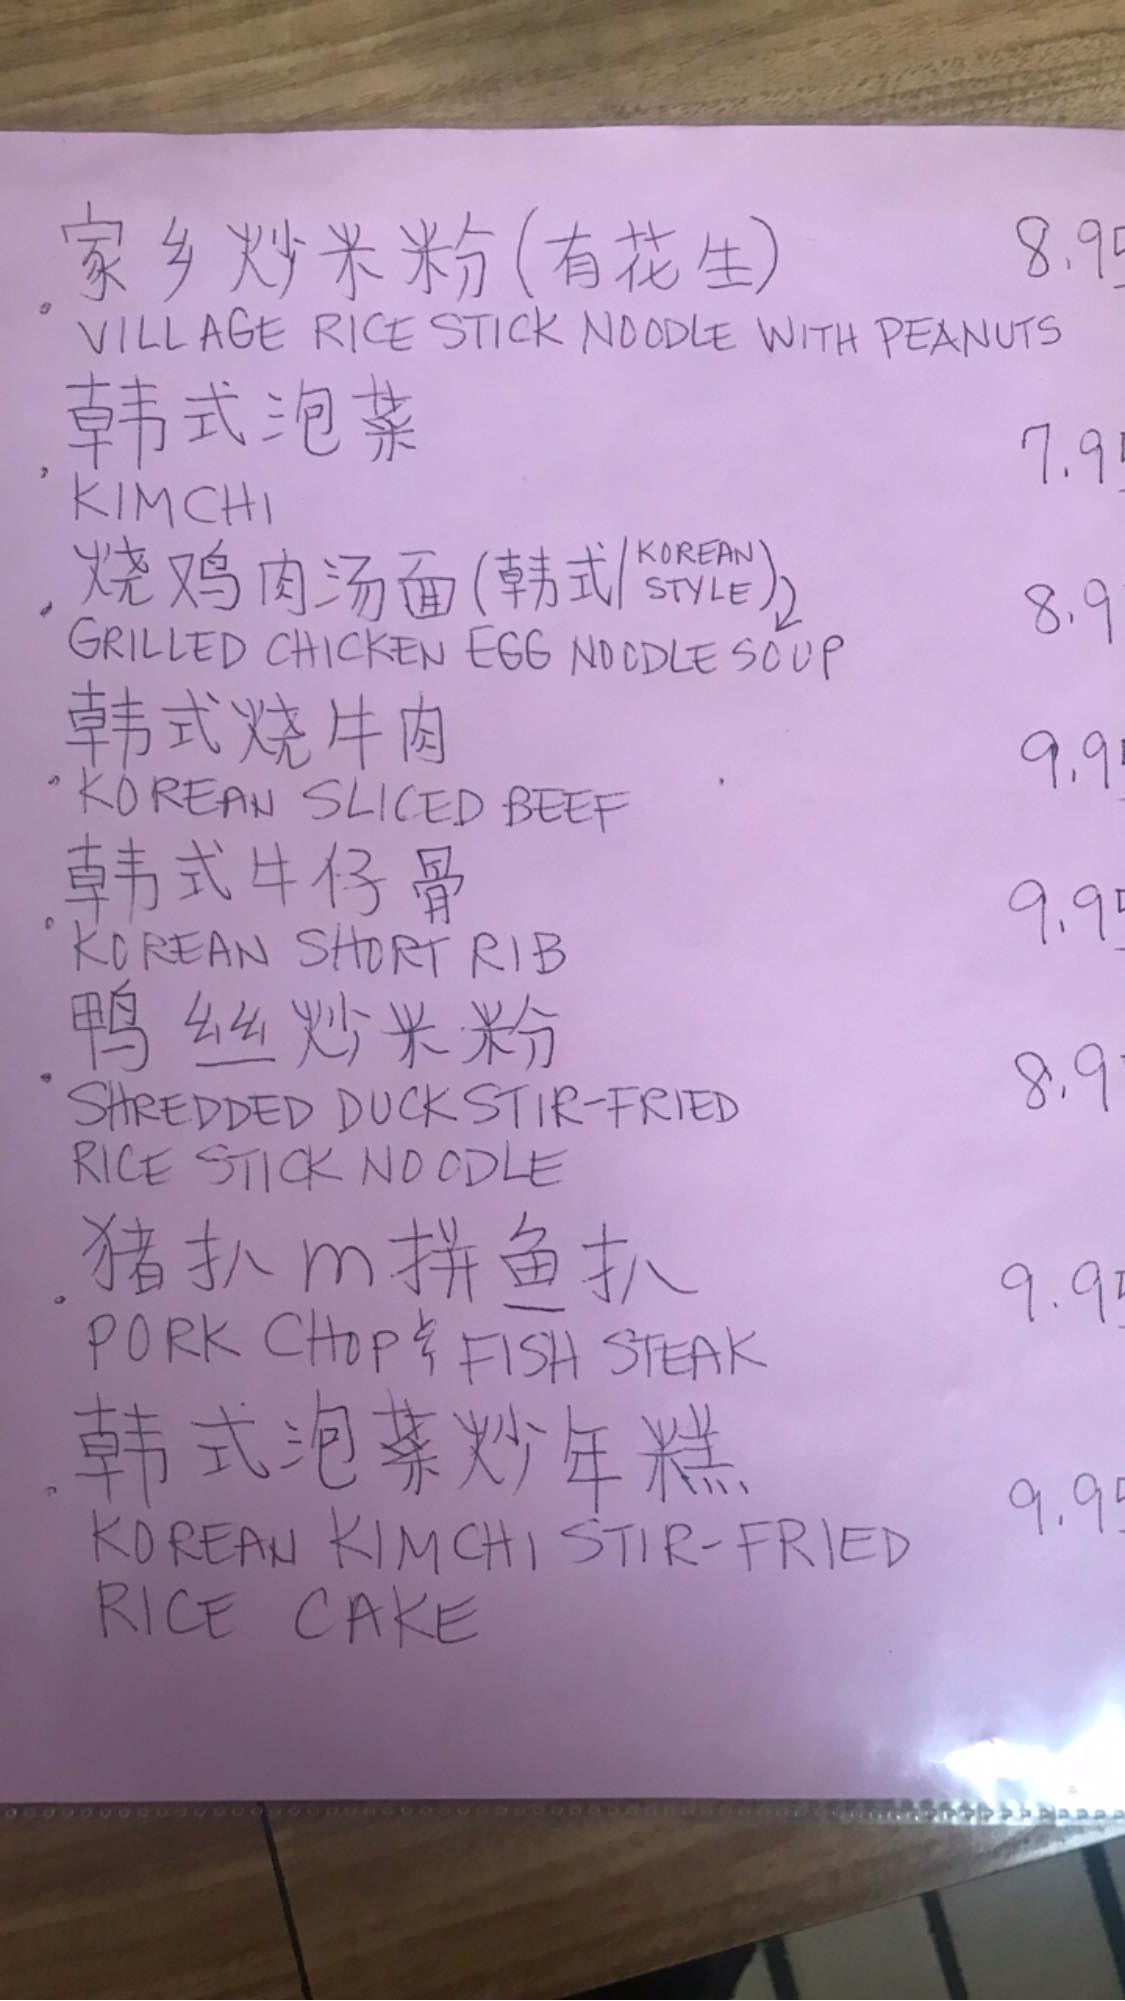 家乡炒米粉(有花生) 8.95
VILLAGE RICE STICK NOODLE WITH PEANUTS
韩式泡菜 7.95
KIMCHI
烧鸡肉汤面(韩式/KOREAN STYLE) 8.9
GRILLED CHICKEN EGG NOODLE SOUP
韩式烧牛肉 9.95
KOREAN SLICED BEEF
韩式牛仔骨 9.95
KOREAN SHORT RIB
鸭丝炒米粉 8.9
SHREDDED DUCK STIR-FRIED
RICE STICK NOODLE
猪扒m拼鱼扒 9.95
PORK CHOP & FISH STEAK
韩式泡菜炒年糕 9.95
KOREAN KIMCHI STIR-FRIED
RICE CAKE